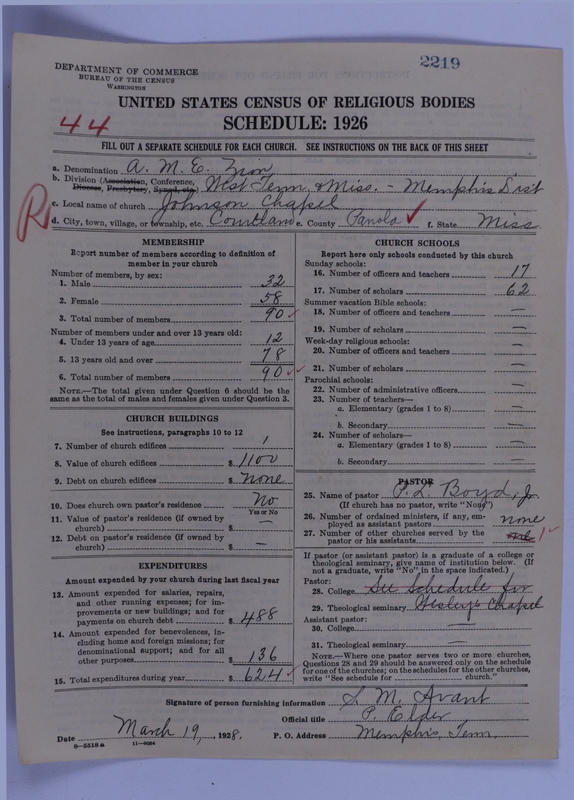 2219
DEPARTMENT OF COMMERCE
BUREAU OF THE CENSUS
WASHINGTON
UNITED STATES CENSUS OF RELIGIOUS BODIES
44
SCHEDULE: 1926
FILL OUT A SEPARATE SCHEDULE FOR EACH CHURCH. SEE INSTRUCTIONS ON THE BACK OF THIS SHEET
a. Denomination A. M. E. Zion
b. Division (Association, Conference, Diocese, Presbytery, Synod, etc.) West Tenn. & Miss. - Memphis Dist
c. Local name of church Johnson Chapel
R
d. City, town, village, or township, etc. Courtland e. County Panola ✓ f. State Miss
MEMBERSHIP
Report number of members according to definition of
member in your church
Number of members, by sex:
1. Male 32
2. Female 58
3. Total number of members 90 ✓
Number of members under and over 13 years old:
4. Under 13 years of age 12
5. 13 years old and over 78
6. Total number of members 90 ✓✓
NOTE.—The total given under Question 6 should be
same as the total of males and females given under Question 3.
CHURCH BUILDINGS
See instructions, paragraphs 10 to 12
7. Number of church edifices 1
8. Value of church edifices $ 1100
9. Debt on church edifices $ none
10. Does church own pastor's residence No
Yes or No
11. Value of pastor's residence (if owned by
church) $ —
12. Debt on pastor's residence (if owned by
church) $ —
EXPENDITURES
Amount expended by your church during last fiscal year
13. Amount expended for salaries, repairs,
and other running expenses; for im-
provements or new buildings; and for
payments on church debt $ 488
14. Amount expended for benevolences, in-
cluding home and foreign missions; for
denominational support; and for all
other purposes $ 136
15. Total expenditures during year $ 624 ✓
CHURCH SCHOOLS
Report here only schools conducted by this church
Sunday schools:
16. Number of officers and teachers 17
17. Number of scholars 62
Summer vacation Bible schools:
18. Number of officers and teachers —
19. Number of scholars —
Week-day religious schools:
20. Number of officers and teachers —
21. Number of scholars —
Parochial schools:
22. Number of administrative officers —
23. Number of teachers—
a. Elementary (grades 1 to 8) —
b. Secondary —
24. Number of scholars—
a. Elementary (grades 1 to 8) —
b. Secondary —
PASTOR
25. Name of pastor P. L. Boyd, Jr.
(If church has no pastor, write "None")
26. Number of ordained ministers, if any, em-
ployed as assistant pastors none
27. Number of other churches served by the
pastor or his assistants 1 ✓
If pastor (or assistant pastor) is a graduate of a college or
theological seminary, give name of institution below. (If
not a graduate, write "No" in the space indicated.)
Pastor:
28. College See Schedule for
29. Theological seminary Wesley Chapel
Assistant pastor:
30. College —
31. Theological seminary —
NOTE.—Where one pastor serves two or more churches,
Questions 28 and 29 should be answered only on the schedule
for one of the churches; on the schedules for the other churches,
write "See schedule for church."
Signature of person furnishing information S. M. Avant
Official title P. Elder
Date March 19, 1928. P. O. Address Memphis, Tenn.
8-5518a 11-9024